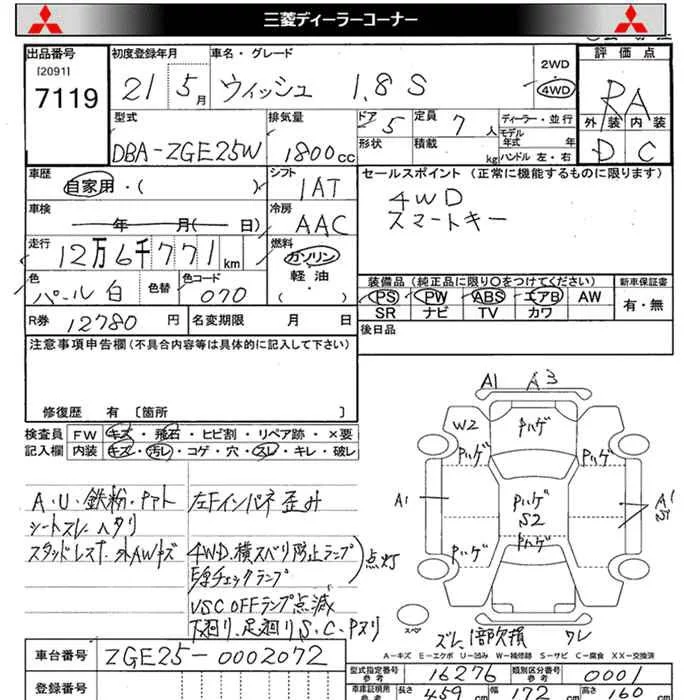 三菱ディーラーコーナー
出品番号
[2091]
7119
初度登録年月
21 5月
車名・グレード
ウィッシュ 1.8S
2WD
4WD
評価点
RA
外装 内装
D C
型式
DBA-ZGE25W
排気量
1800cc
ドア 5
形状
定員 7人
積載 kg
ディーラー・並行
モデル年式 年
ハンドル 左・右
車歴
自家用・( )
シフト
1AT
車検
年 月( 日)
冷房
AAC
走行
12万6千771km
燃料
ガソリン
軽油
( )
色
パール白
色替
色コード
070
セールスポイント(正常に機能するものに限ります)
4WD
スマートキー
装備品(純正品に限り○をつけてください)
PS PW ABS エアB AW
SR ナビ TV カワ
新車保証書
有・無
R券 12780円
名変期限 月 日
後日品
注意事項申告欄(不具合内容等は具体的に記入して下さい)
修復歴 有 [箇所 ]
検査員記入欄
FW キズ・飛石・ヒビ割・リペア跡・×要
内装 キズ・汚レ・コゲ・穴・スレ・キレ・破レ
A・U・鉄粉・Pタト
シートスレ・ヘタリ
左Fインパネ歪み
4WD、横スベリ防止ランプ
点灯
VSC OFFランプ点滅
下廻り、足廻りS、C、Pヌリ
A1 A3
W2
Pハゲ
Pハゲ
Pハゲ
A1
Pハゲ
S2
A1
S1
Pハゲ
Pハゲ
Pハゲ
スペア
1部欠損 ワレ
A-キズ E-エクボ U-凹み W-補修跡 S-サビ C-腐食 XX-交換済
車台番号
ZGE25-0002072
登録番号
型式指定番号参考
16276
類別区分番号参考
0001
車庫証明用参考
長さ 459cm 幅 172cm 高さ 160cm